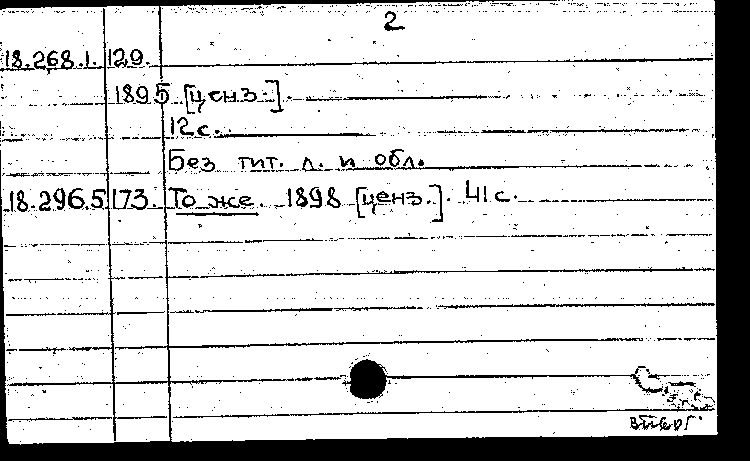 2
18.268.1. 129.
1895 [ценз.].
12 с.
Без тит. л. и обл.
18.296.5 173. То же. 1898 [ценз.]. 41 с.